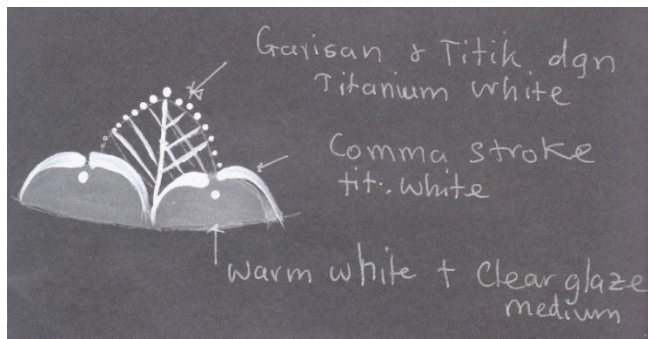 Garisan & Titik dgn
Titanium White
Comma stroke
tit. white
warm white + Clear glaze
medium